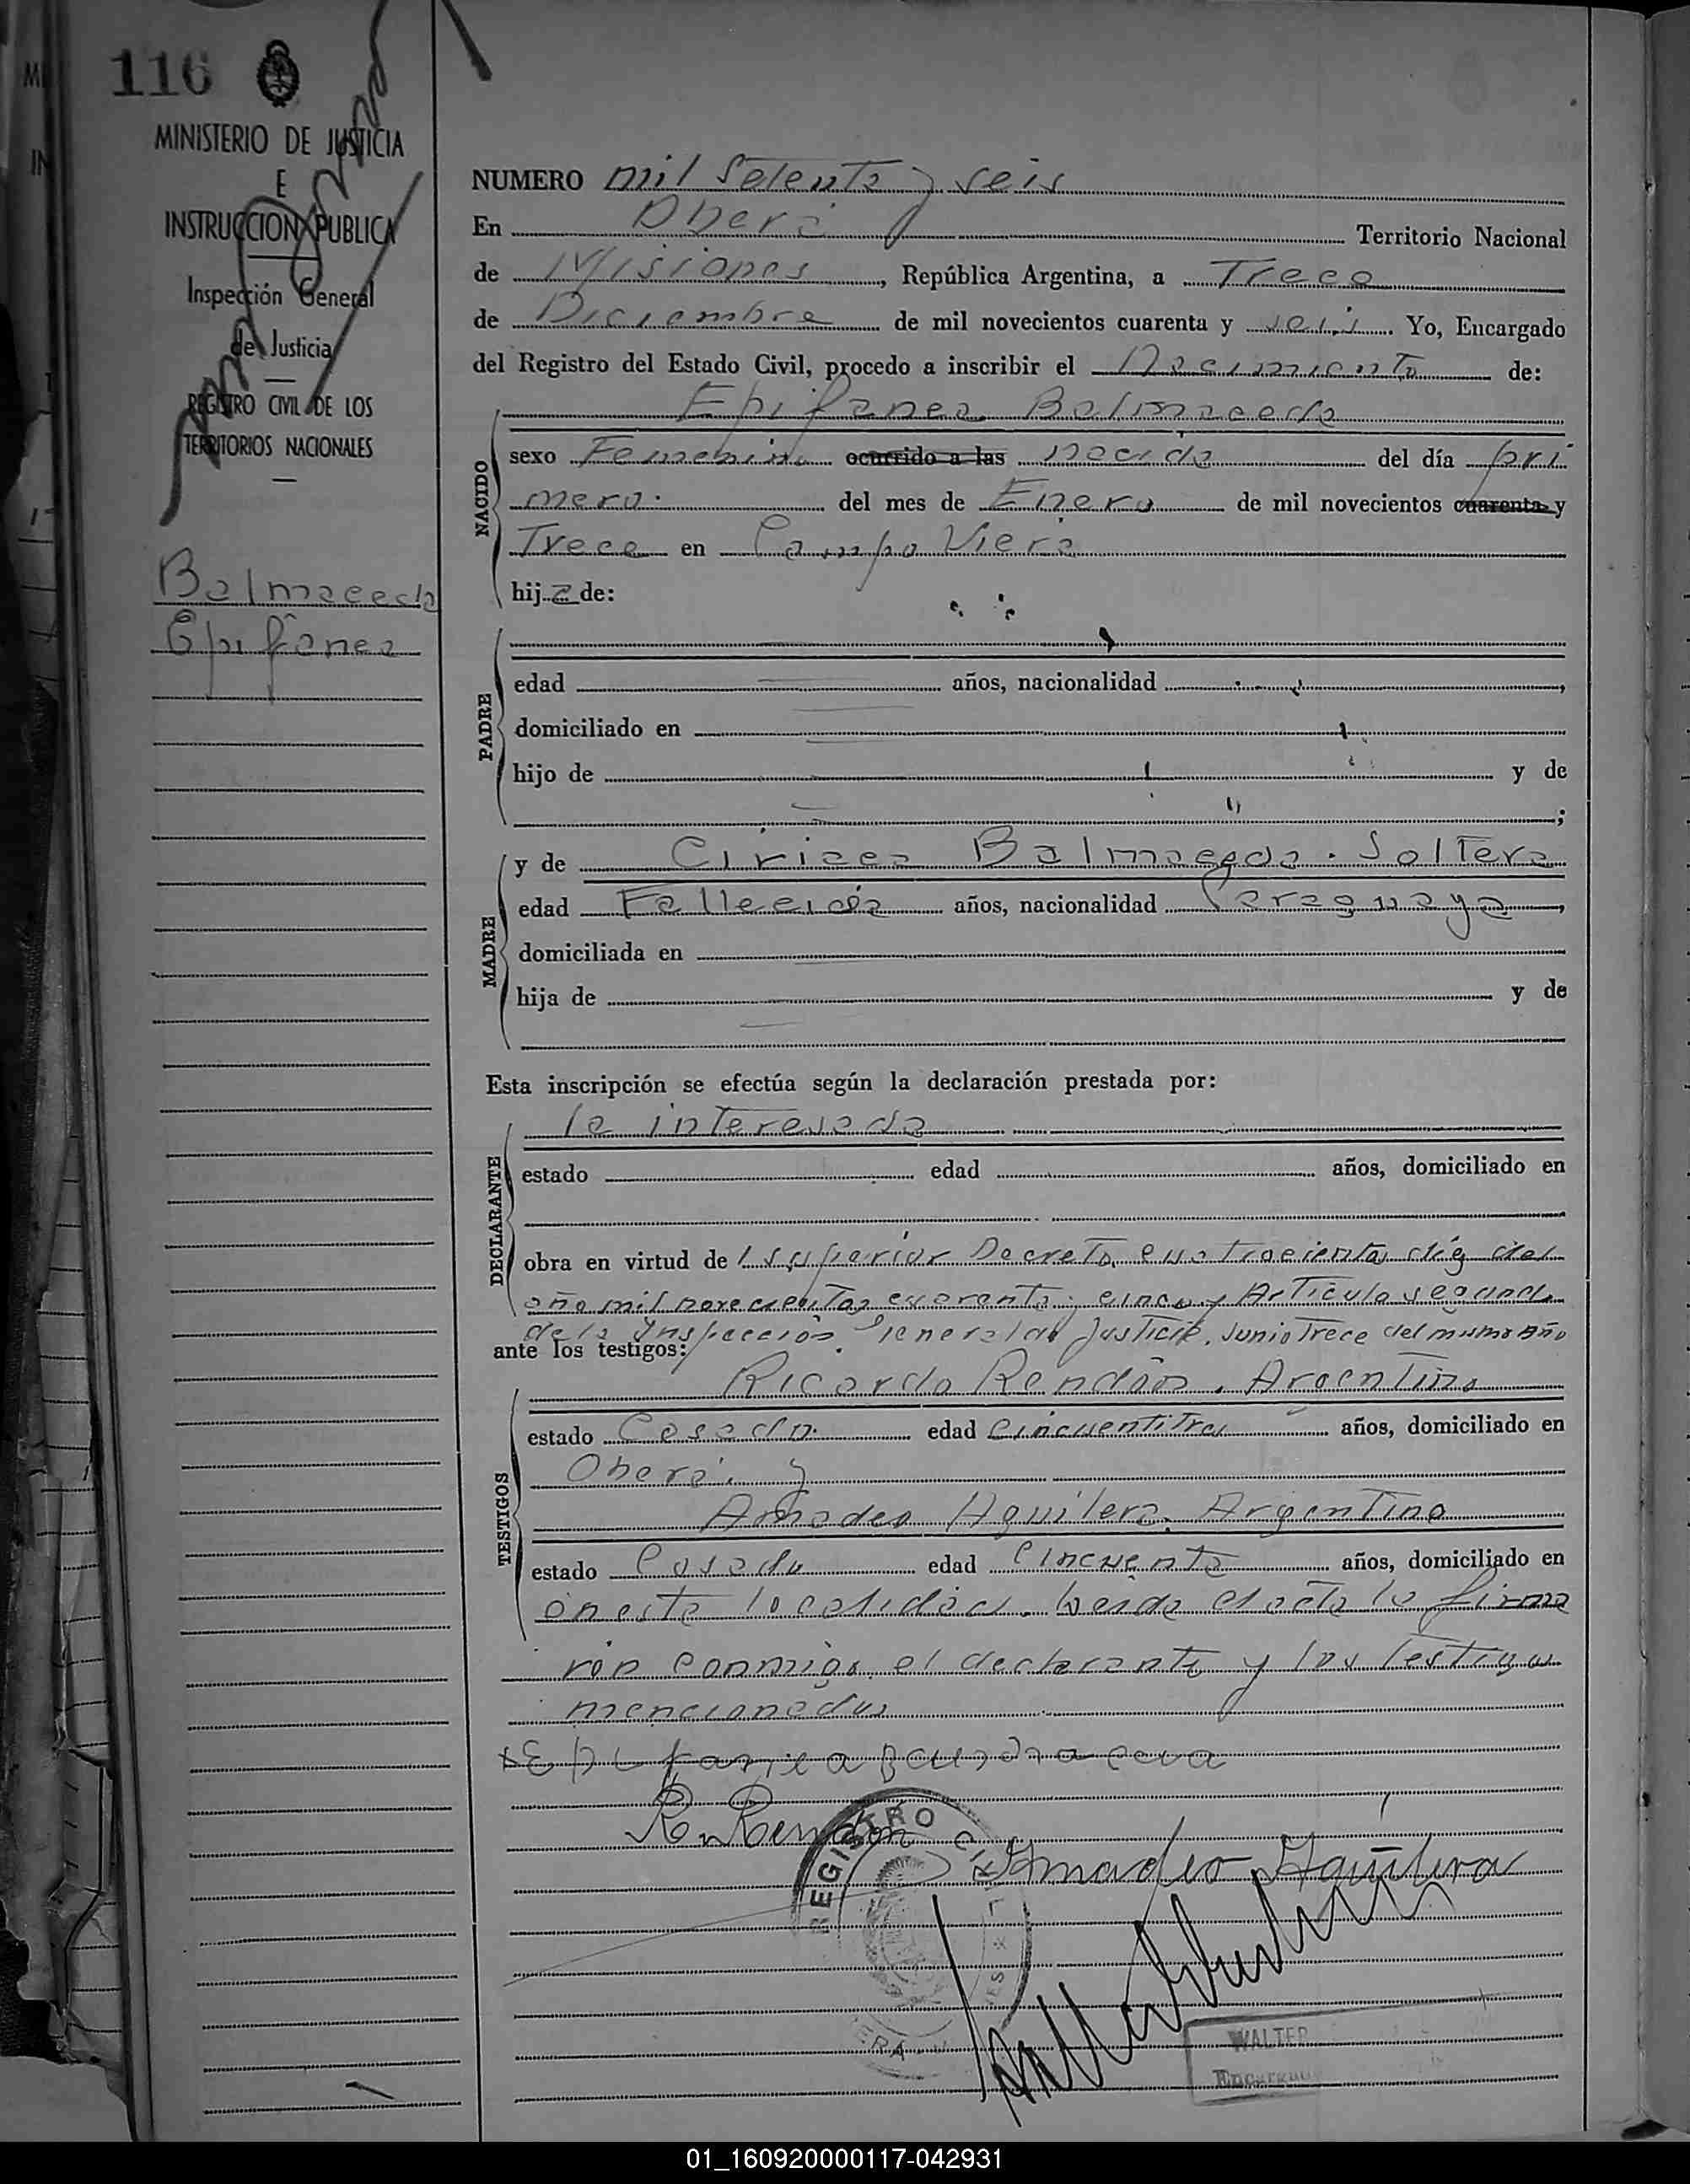 116
MINISTERIO DE JUSTICIA
E
INSTRUCCION PUBLICA
Inspección General
de Justicia
REGISTRO CIVIL DE LOS
TERRITORIOS NACIONALES
Balmaceda
Epifanea
NUMERO mil Setenta y seis
En Oberá Territorio Nacional
de Misiones, República Argentina, a Trece
de Diciembre de mil novecientos cuarenta y seis. Yo, Encargado
del Registro del Estado Civil, procedo a inscribir el Nacimiento de:
NACIDO
Epifanea Balmaceda
sexo Femenino ocurrido a las nacida del día pri
mero. del mes de Enero de mil novecientos cuarenta y
Trece en Campo Viera
hija de:
PADRE
edad años, nacionalidad ,
domiciliado en
hijo de y de
;
MADRE
y de Ciriaca Balmaceda. Soltera
edad Fallecida años, nacionalidad Paraguaya,
domiciliada en
hija de y de
Esta inscripción se efectúa según la declaración prestada por:
DECLARANTE
la interesada
estado edad años, domiciliado en
obra en virtud del superior Decreto cuatrocientos diez del
año mil novecientos cuarenta y cinco y Articulo segundo
de la Inspección General de Justicia, Junio Trece del mismo Año
ante los testigos:
TESTIGOS
Ricardo Rendón. Argentino
estado Casado. edad Cincuentitres años, domiciliado en
Oberá. y
Amadeo Aguilera. Argentino
estado Casado edad Cincuenta años, domiciliado en
en esta localidad. Leida el acta la firma
ron conmigo el declarante y los testigos
mencionados
Epifaniea
R. Rendón
REGISTRO CIVIL
Amadeo Aguilera
WALTER
Encargado
01_160920000117-042931